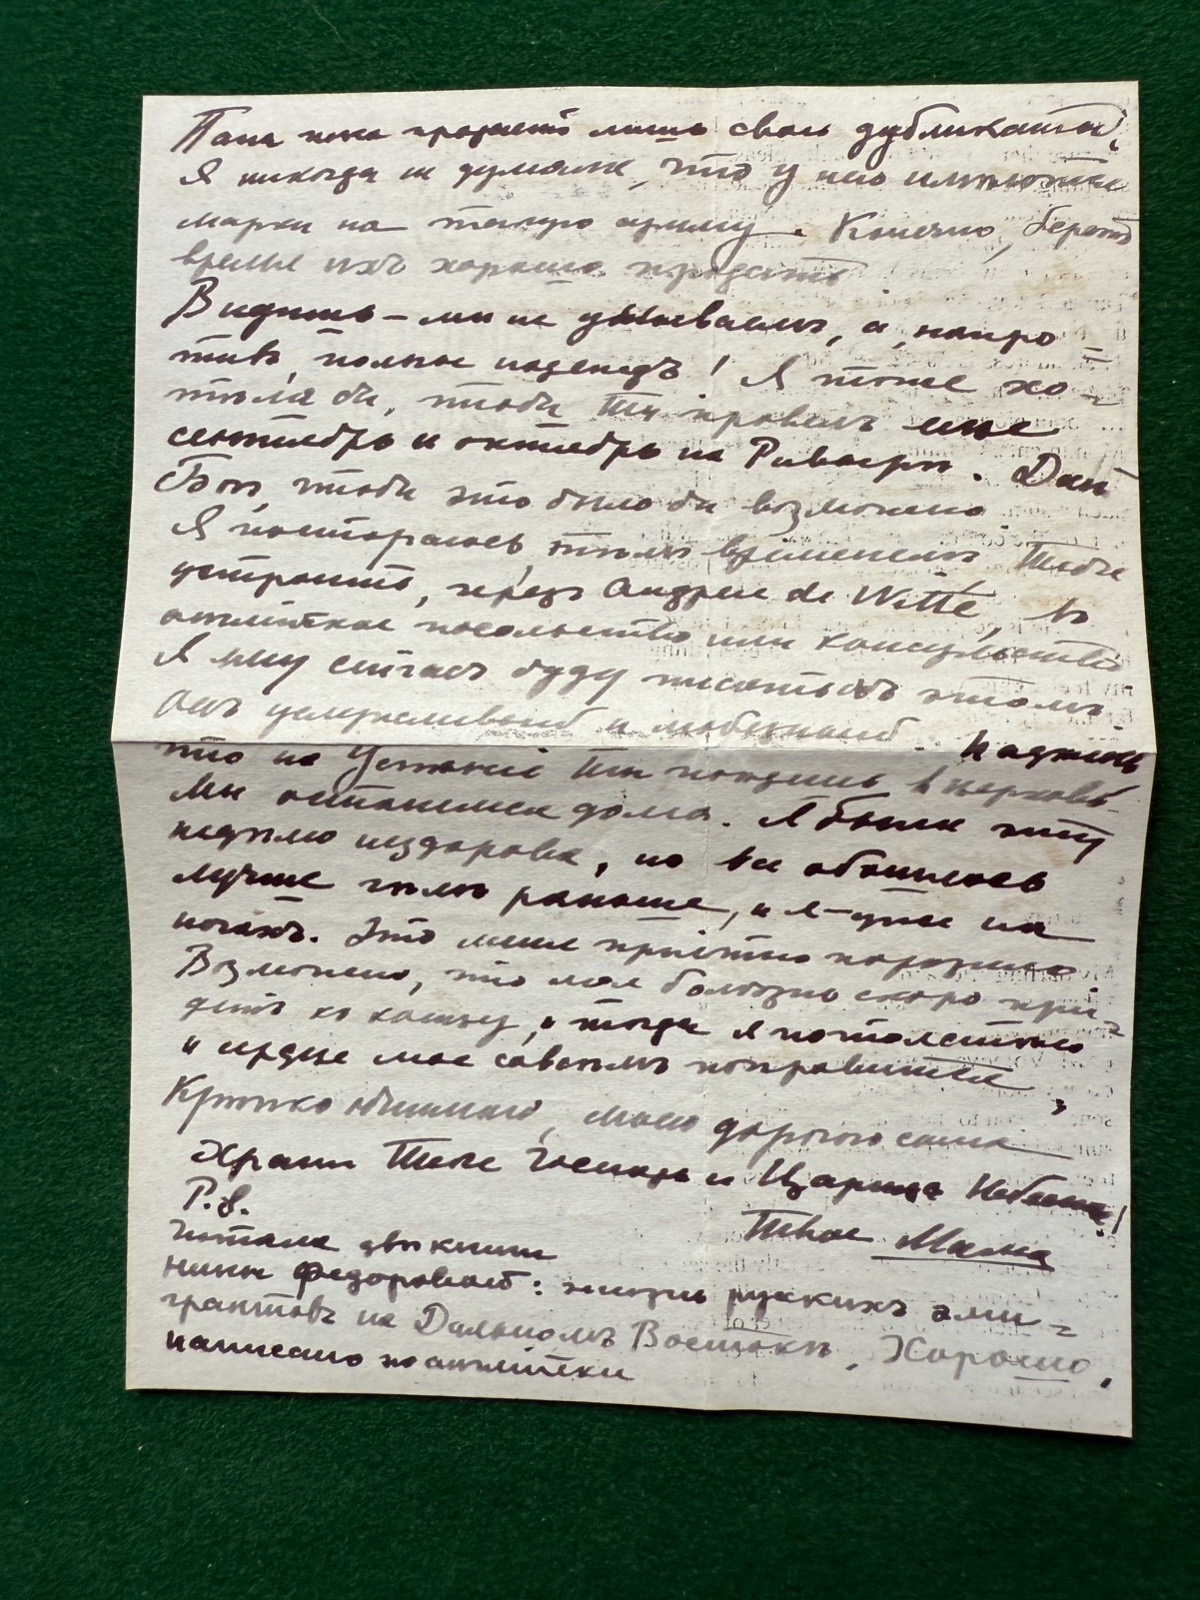 Папа пока продаетъ лишь свои дубликаты,
Я никогда не думала, что у него имѣются
марки на такую сумму. Конечно, беретъ
время ихъ хорошо продать
Видишь – мы не унываемъ, а, напро=
тивъ, полны надеждъ! Я тоже хо=
тѣла бы, чтобы Ты провелъ еще
сентябрь и октябрь на Ривьерѣ. Дай
Богъ, чтобы это было бы возможно
Я постараюсь, тѣмъ временемъ Тебя
устроить, черезъ Андрея de Witte, въ
англійское посольство или консульство
Я ему сейчасъ буду писать объ этомъ
Онъ услужливый и любезный. Надѣюсь
что на Успеніе Ты пойдешь въ церковь
Мы останемся дома. Я была эту
недѣлю нездорова, но все обошлось
лучше чѣмъ раньше, и я – уже на
ногахъ. Это меня пріятно поразило
Возможно, что моя болѣзнь скоро прі=
детъ къ концу, и тогда я потолстѣю
и сердце мое совсѣмъ поправится,
Крѣпко обнимаю, моего дорогого сына
Храни Тебя Господь и Царица Небесная!
P.S.
Твоя Мама
Читала двѣ книги
Нины Федоровой: жизнь русскихъ эми=
грантовъ на Дальномъ Востокѣ, Хорошо,
написано по англійски